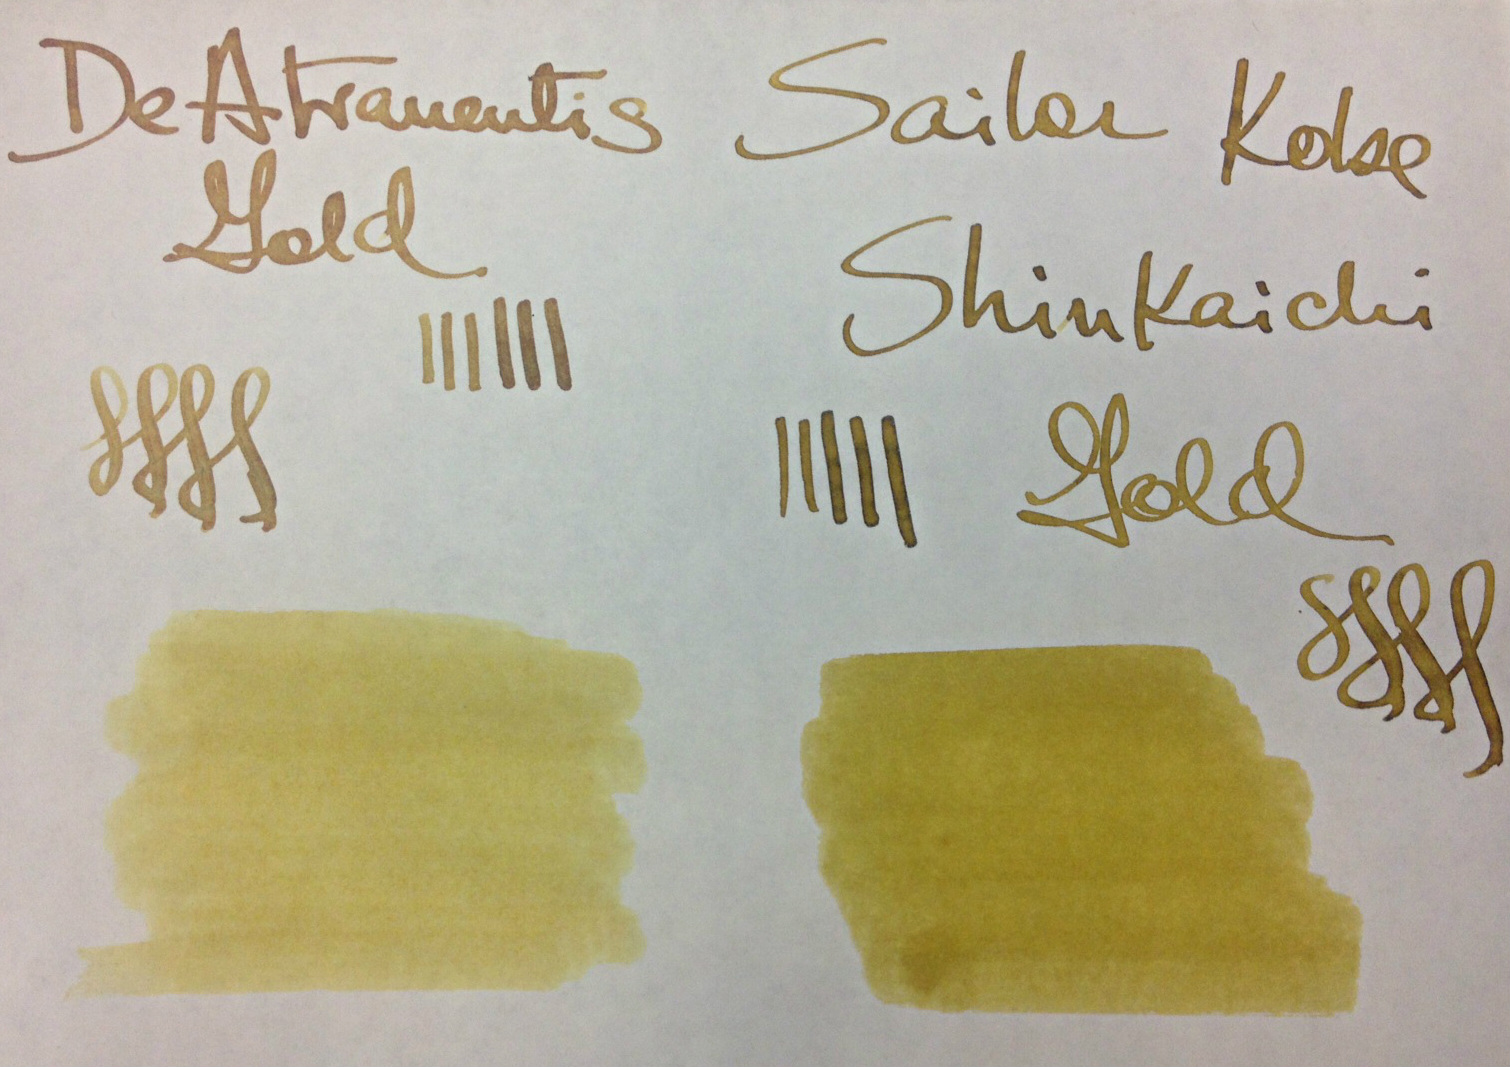 De Atramentis
Gold
Sailor Kobe
Shinkaichi
Gold